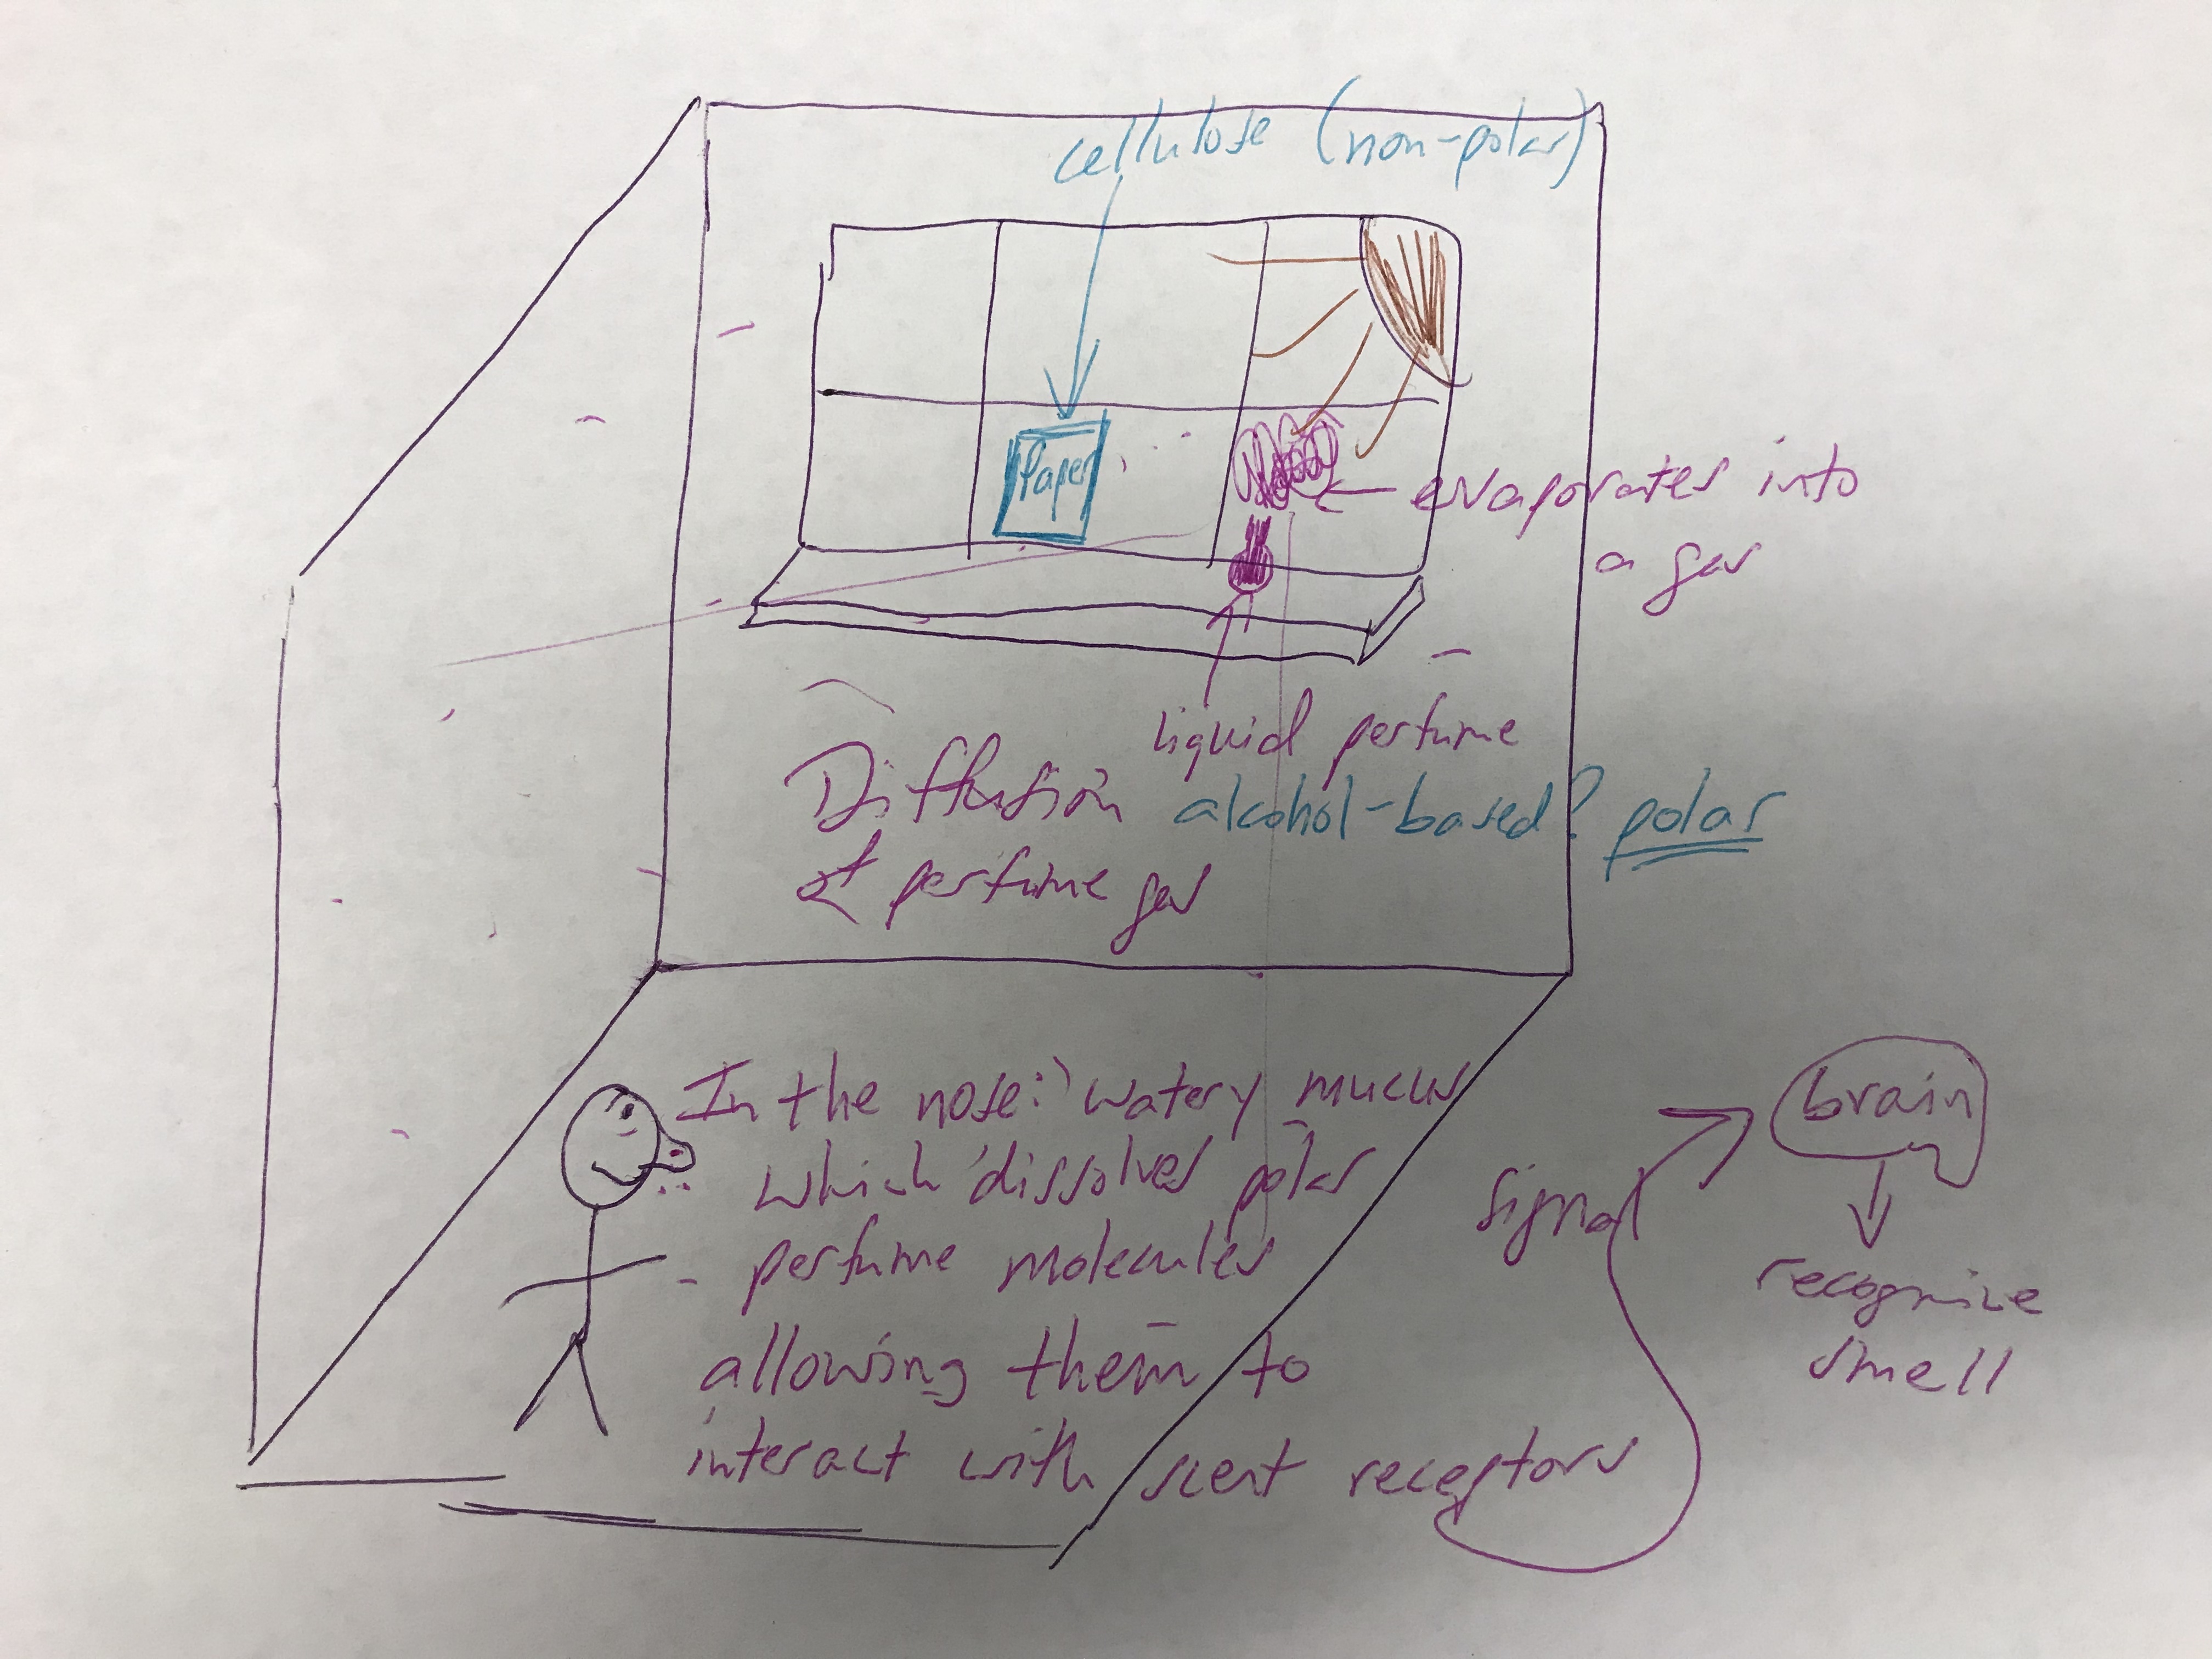 cellulose (non-polar)
Paper
evaporates into
a gas
liquid perfume
alcohol-based? polar
Diffusion
of perfume gas
In the nose: watery mucus
which dissolves polar
perfume molecules
allowing them to
interact with scent receptors
signal
brain
recognize
smell